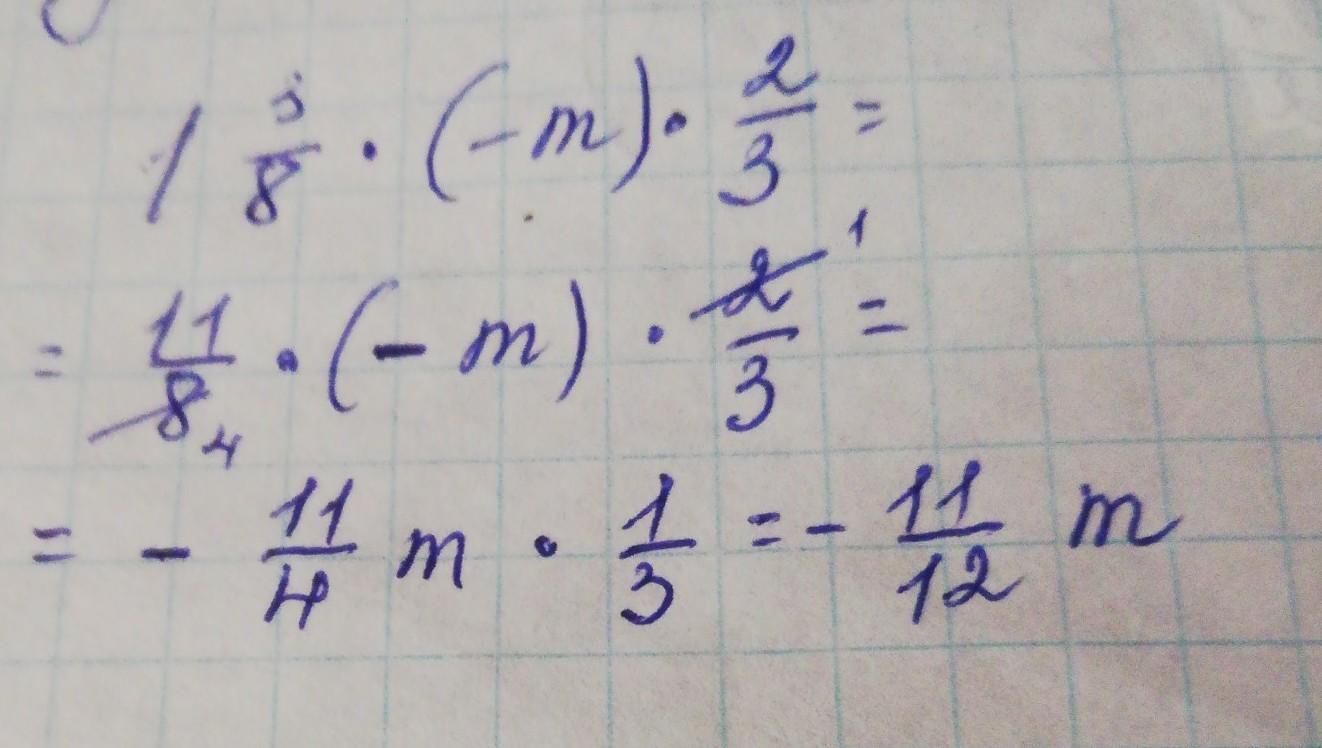 1 3/8 · (-m) · 2/3 =
= 11/8 4 · (- m) · 2/3 1 =
= - 11/4 m · 1/3 = - 11/12 m